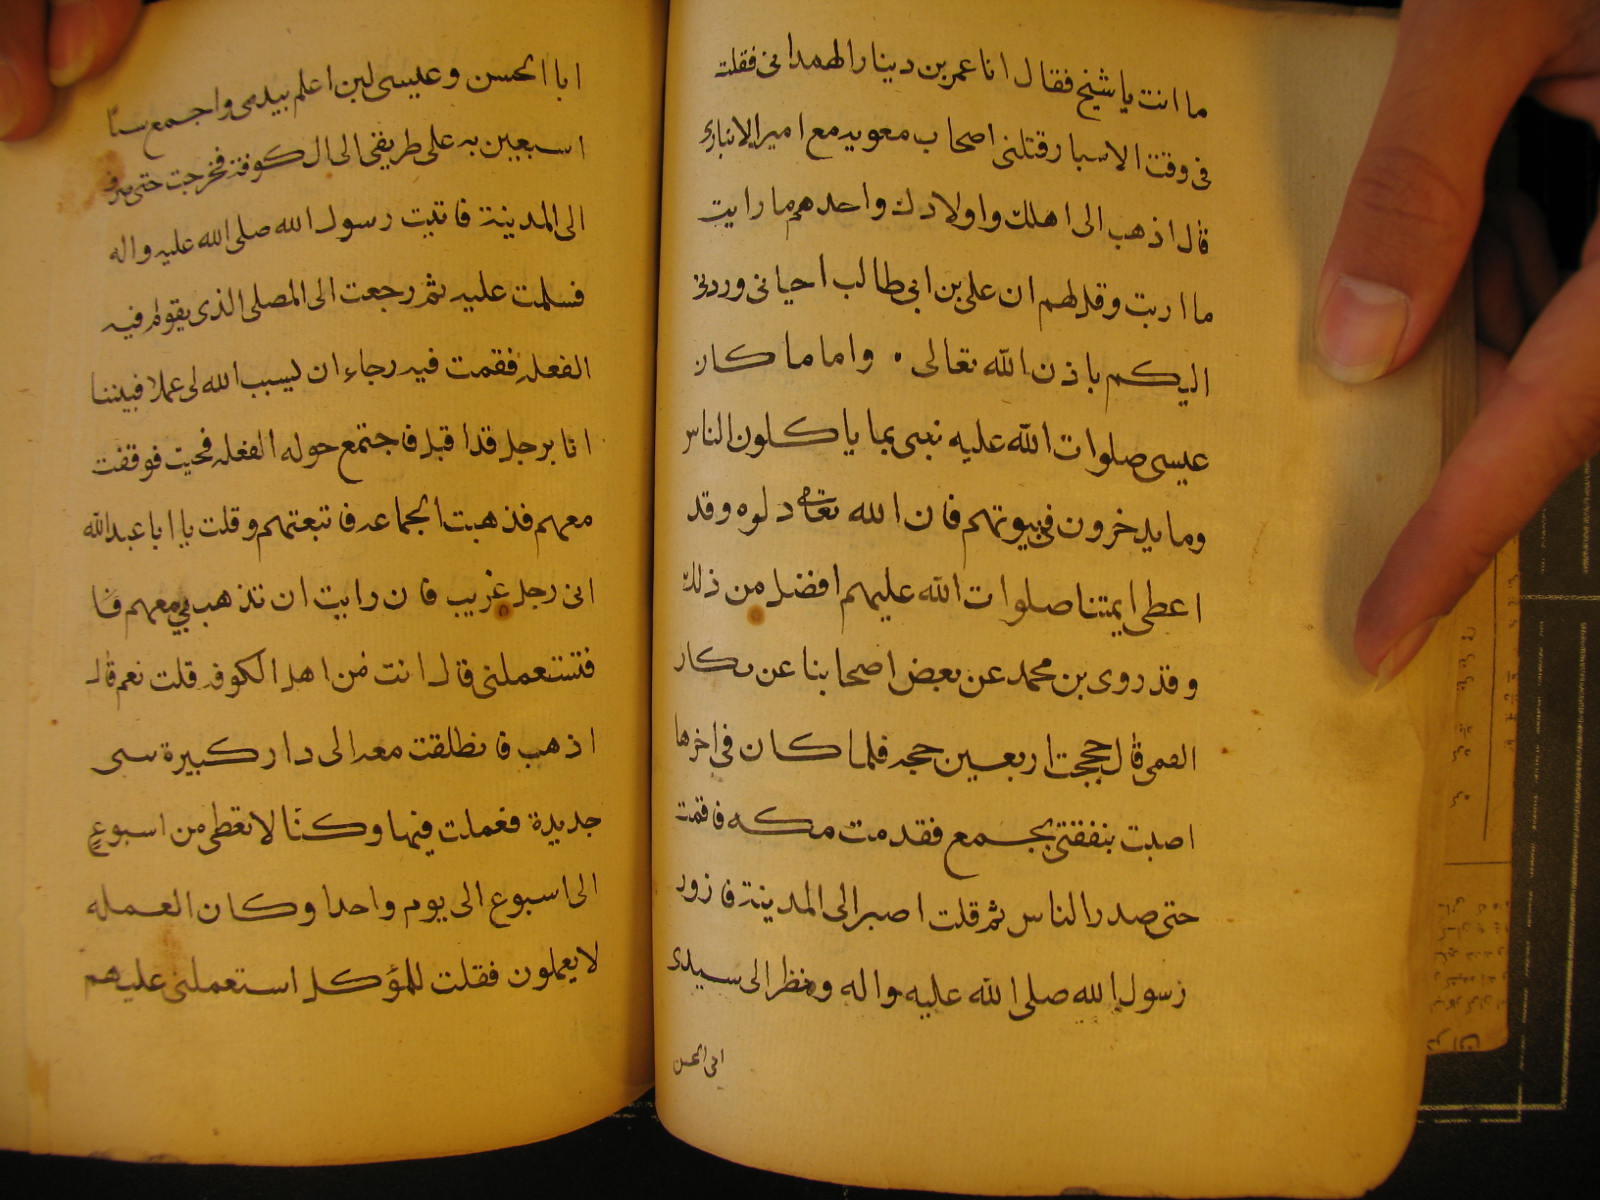 ما انت يا شيخ فقال انا عمر بن دينار الهمداني فقلت
في وقت الاسبار قتلني اصحاب معويه مع امير الانبار
قال اذهب الى اهلك واولادك واحدهم ما رايت
ما اربت وقل لهم ان على بن ابي طالب احياني وردني
اليكم باذن الله تعالى . واما ما كان
عيسى صلوات الله عليه نبى بما ياكلون الناس
وما يدخرون في بيوتهم فان الله تعالى وقد
اعطى ايمتنا صلوات الله عليهم افضل من ذلك
وقد روى بن محمد عن بعض اصحابنا عن بكار
القمي قال حججت اربعين حجه فلما كان في اخرها
اصبت بنفقتي بجمع فقدمت مكه فاقمت
حتى صدر الناس ثم قلت اصير الى المدينة فازور
رسول الله صلى الله عليه واله وانظر الى سيدى
ابى الحسن
ابا الحسن وعيسى لبن اعلم بيدى واجمع سيئا
استعين به على طريقي الى ال كوفة فخرجت حتى صرت
الى المدينة فاتيت رسول الله صلى الله عليه واله
فسلمت عليه ثم رجعت الى المصلى الذى يقوم فيه
الفعله فقمت فيه رجاء ان يسبب الله لى عملا فبيننا
انا برجل قد اقبل فاجتمع حوله الفعله فجيت فوقفت
معهم فذهبت الجماعه فاتبعتهم وقلت يا ابا عبد الله
انى رجل غريب فان رايت ان تذهب بي معهم فا
فتستعملنى قال انت من اهل الكوفه قلت نعم قال
اذهب فانطلقت معه الى دار كبيرة سى
جديدة فعملت فيها وكنا لا نعطى من اسبوع
الى اسبوع الى يوم واحدا وكان العمله
لا يعملون فقلت للمؤكل استعملنى عليهم